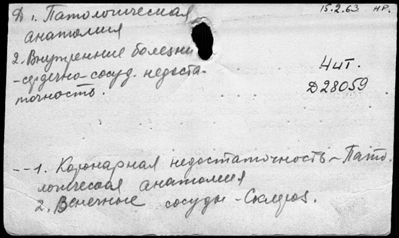 Д 1. Патологическая
анатомия
15.2.63 НР.
2. Внутренние болезни
- сердечно-сосуд. недоста-
точность.
Чит.
Д28059
-- 1. Коронарная недостаточность - Пато
логическая анатомия
2. Венечные сосуды - Склероз.